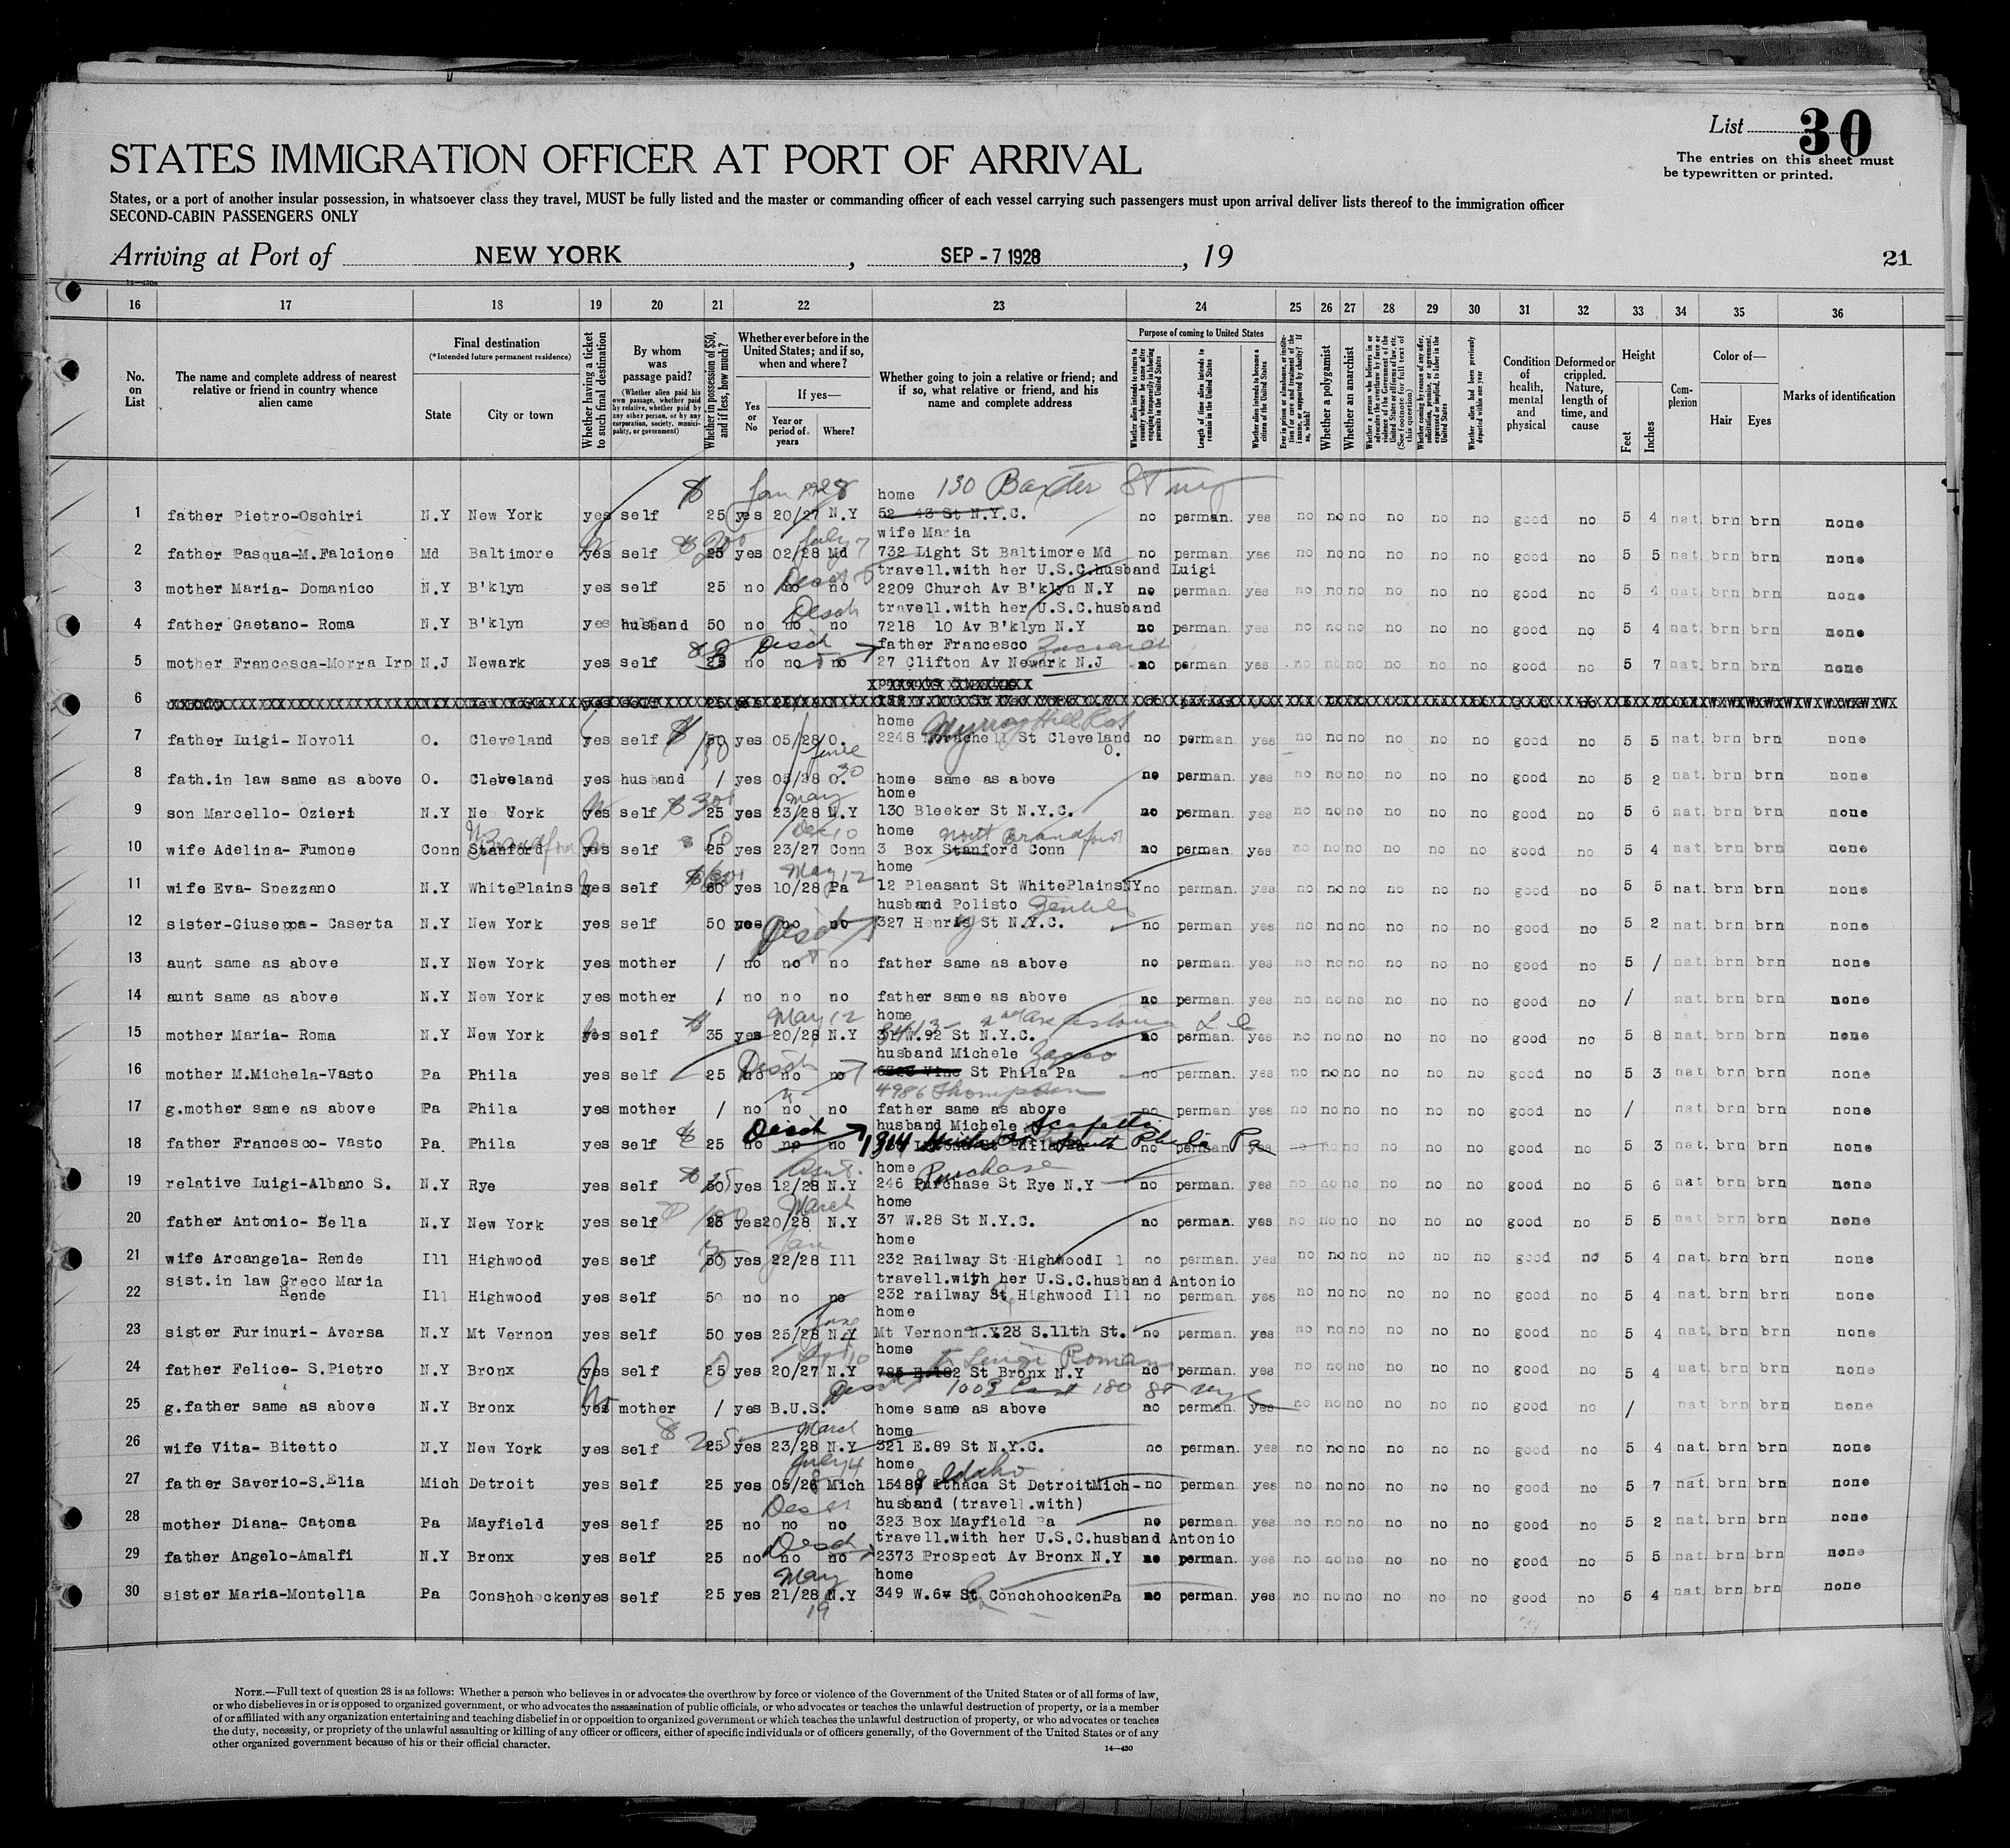 List 30
The entries on this sheet must
be typewritten or printed.
STATES IMMIGRATION OFFICER AT PORT OF ARRIVAL
States, or a port of another insular possession, in whatsoever class they travel, MUST be fully listed and the master or commanding officer of each vessel carrying such passengers must upon arrival deliver lists thereof to the immigration officer
SECOND-CABIN PASSENGERS ONLY
Arriving at Port of NEW YORK, SEP - 7 1928, 19 21
16 17 18 19 20 21 22 23 24 25 26 27 28 29 30 31 32 33 34 35 36
No. on List
The name and complete address of nearest relative or friend in country whence alien came
Final destination
(*Intended future permanent residence)
State City or town
Whether having a ticket to such final destination
By whom was passage paid?
(Whether alien paid his own passage, whether paid by relative, whether paid by any other person, or by any corporation, society, municipality, or government)
Whether in possession of $50, and if less, how much?
Whether ever before in the United States; and if so, when and where?
Yes or No
If yes—
Year or period of years
Where?
Whether going to join a relative or friend; and if so, what relative or friend, and his name and complete address
Purpose of coming to United States
Whether alien intends to return to country whence he came after engaging temporarily in laboring pursuits in the United States
Length of time alien intends to remain in the United States
Whether alien intends to become a citizen of the United States
Ever in prison or almshouse, or institution for care and treatment of the insane, or supported by charity? If so, which?
Whether a polygamist
Whether an anarchist
Whether a person who believes in or advocates the overthrow by force or violence of the Government of the United States or all forms of law, etc. (See footnote for full text of this question)
Whether coming by reason of any offer, solicitation, promise, or agreement, expressed or implied, to labor in the United States
Whether alien had been previously deported within one year
Condition of health, mental and physical
Deformed or crippled. Nature, length of time, and cause
Height
Feet Inches
Complexion
Color of—
Hair Eyes
Marks of identification
Jan 1928 home 130 Baxter St
1 father Pietro-Oschiri N.Y New York yes self 25 yes 20/27 N.Y 52 43 St N.Y.C. no perman. yes no no no no no no good no 5 4 nat. brn brn none
July 7 wife Maria
2 father Pasqua-M.Falcione Md Baltimore yes self 25 yes 02/28 Md 732 Light St Baltimore Md no perman. yes no no no no no no good no 5 5 nat. brn brn none
travell.with her U.S.C.husband Luigi
3 mother Maria- Domanico N.Y B'klyn yes self 25 no no no 2209 Church Av B'klyn N.Y no perman. yes no no no no no no good no 5 4 nat. brn brn none
travell.with her U.S.C.husband
4 father Gaetano- Roma N.Y B'klyn yes husband 50 no no no 7218 10 Av B'klyn N.Y no perman. yes no no no no no no good no 5 4 nat. brn brn none
father Francesco
5 mother Francesca-Morra Irp N.J Newark yes self 25 no no no 27 Clifton Av Newark N.J no perman. yes no no no no no no good no 5 7 nat. brn brn none
6
home
7 father Luigi- Novoli O. Cleveland yes self 50 yes 05/28 O. 2248 St Cleveland O. no perman. yes no no no no no no good no 5 5 nat. brn brn none
June 30
8 fath.in law same as above O. Cleveland yes husband / yes 05/28 O. home same as above no perman. yes no no no no no no good no 5 2 nat. brn brn none
May home
9 son Marcello- Ozieri N.Y Ne York yes self 25 yes 23/28 N.Y 130 Bleeker St N.Y.C. no perman. yes no no no no no no good no 5 6 nat. brn brn none
Dec 10 home North Brandford
10 wife Adelina- Fumone Conn Stanford yes self 25 yes 23/27 Conn 3 Box Stanford Conn no perman. yes no no no no no no good no 5 4 nat. brn brn none
May 12 home
11 wife Eva- Spezzano N.Y WhitePlains yes self 60 yes 10/28 Pa 12 Pleasant St WhitePlainsNY no perman. yes no no no no no no good no 5 5 nat. brn brn none
husband Polisto
12 sister-Giuseppa- Caserta N.Y New York yes self 50 no no 327 Henry St N.Y.C. no perman yes no no no no no no good no 5 2 nat. brn brn none
13 aunt same as above N.Y New York yes mother / no no no father same as above no perman. yes no no no no no no good no 5 / nat. brn brn none
14 aunt same as above N.Y New York yes mother / no no no father same as above no perman. yes no no no no no no good no / nat. brn brn none
May 12 home
15 mother Maria- Roma N.Y New York yes self 35 yes 20/28 N.Y W.92 St N.Y.C. no perman. yes no no no no no no good no 5 8 nat. brn brn none
husband Michele
16 mother M.Michela-Vasto Pa Phila yes self 25 no no no St Phila Pa no perman. yes no no no no no no good no 5 3 nat. brn brn none
4986 Thompson
17 g.mother same as above Pa Phila yes mother / no no no father same as above no perman. yes no no no no no no good no / nat. brn brn none
husband Michele
18 father Francesco- Vasto Pa Phila yes self 25 no no no 1314 South Phila Pa no perman yes no no no no no no good no 5 3 nat. brn brn none
home Purchase
19 relative Luigi-Albano S. N.Y Rye yes self 50 yes 12/28 N.Y 246 Purchase St Rye N.Y no perman. yes no no no no no no good no 5 6 nat brn brn none
March home
20 father Antonio- Bella N.Y New York yes self 25 yes 20/28 N.Y 37 W.28 St N.Y.C. no perman. yes no no no no no no good no 5 5 nat brn brn none
Jan home
21 wife Arcangela- Rende Ill Highwood yes self 50 yes 22/28 Ill 232 Railway St HighwoodI l no perman. yes no no no no no no good no 5 4 nat. brn brn none
sist.in law Greco Maria travell.with her U.S.C.husband Antonio
22 Rende Ill Highwood yes self 50 no no no 232 railway St Highwood Ill no perman. yes no no no no no no good no 5 4 nat. brn brn none
home
23 sister Furinuri- Aversa N.Y Mt Vernon yes self 50 yes 25/28 N.Y Mt Vernon N.Y.28 S.11th St. no perman. yes no no no no no no good no 5 4 nat. brn brn none
Sept 10 home Luigi Romano
24 father Felice- S.Pietro N.Y Bronx yes self yes 20/27 N.Y St Bronx N.Y no perman. yes no no no no no no good no 5 4 nat. brn brn none
1003 East 180 St
25 g.father same as above N.Y Bronx yes mother / yes B.U.S. home same as above no perman. yes no no no no no no good no / nat. brn brn none
March home
26 wife Vita- Bitetto N.Y New York yes self 25 yes 23/28 N.Y 321 E.89 St N.Y.C. no perman. yes no no no no no no good no 5 4 nat. brn brn none
July 4 home Idaho
27 father Saverio-S.Elia Mich Detroit yes self 25 yes 05/28 Mich 15489 Ithaca St DetroitMich- no perman. yes no no no no no no good no 5 7 nat. brn brn none
husband (travell.with)
28 mother Diana- Catona Pa Mayfield yes self 25 no no no 323 Box Mayfield Pa no perman. yes no no no no no no good no 5 2 nat. brn brn none
travell.with her U.S.C.husband Antonio
29 father Angelo-Amalfi N.Y Bronx yes self 25 no no no 2373 Prospect Av Bronx N.Y no perman. yes no no no no no no good no 5 5 nat. brn brn none
May home
30 sister Maria-Montella Pa Conshohocken yes self 25 yes 21/28 N.Y 349 W.6 St ConchohockenPa no perman. yes no no no no no no good no 5 4 nat. brn brn none
19
NOTE.—Full text of question 28 is as follows: Whether a person who believes in or advocates the overthrow by force or violence of the Government of the United States or of all forms of law,
or who disbelieves in or is opposed to organized government, or who advocates the assassination of public officials, or who advocates or teaches the unlawful destruction of property, or is a member
of or affiliated with any organization entertaining and teaching disbelief in or opposition to organized government or which teaches the unlawful destruction of property, or who advocates or teaches
the duty, necessity, or propriety of the unlawful assaulting or killing of any officer or officers, either of specific individuals or of officers generally, of the Government of the United States or of any
other organized government because of his or their official character.
14—430